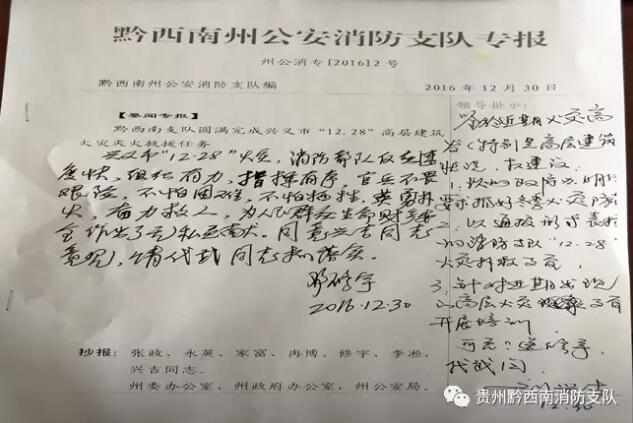 黔西南州公安消防支队专报
州公消专[2016]2号
黔西南州公安消防支队编
2016年12月30日
【要闻专报】
黔西南支队圆满完成兴义市“12.28”高层建筑
火灾灭火救援任务
兴义市“12.28”火灾,消防部队反应迅
速快,组织有力,指挥有序,官兵不畏
艰险,不怕困难,不怕牺牲,英勇扑
火,奋力救人,为人民群众生命财产安
全作出了无私奉献。同意兴吉同志
意见,请代战同志抓落实。
修宇
2016.12.30
领导批示:
鉴于近期火灾高
发(特别是高层建筑
状况,校建议:
1.以州政府办明
要求抓好冬季火灾防
2.以通报形式表扬
州消防支队“12.28”
火灾扑救
3.针对近期出现
的高层火灾
开展培训
代战阅
12.30
抄报:张政、永英、家富、冉博、修宇、李淞、
兴吉同志。
州委办公室、州政府办公室、州公安局。
贵州黔西南消防支队